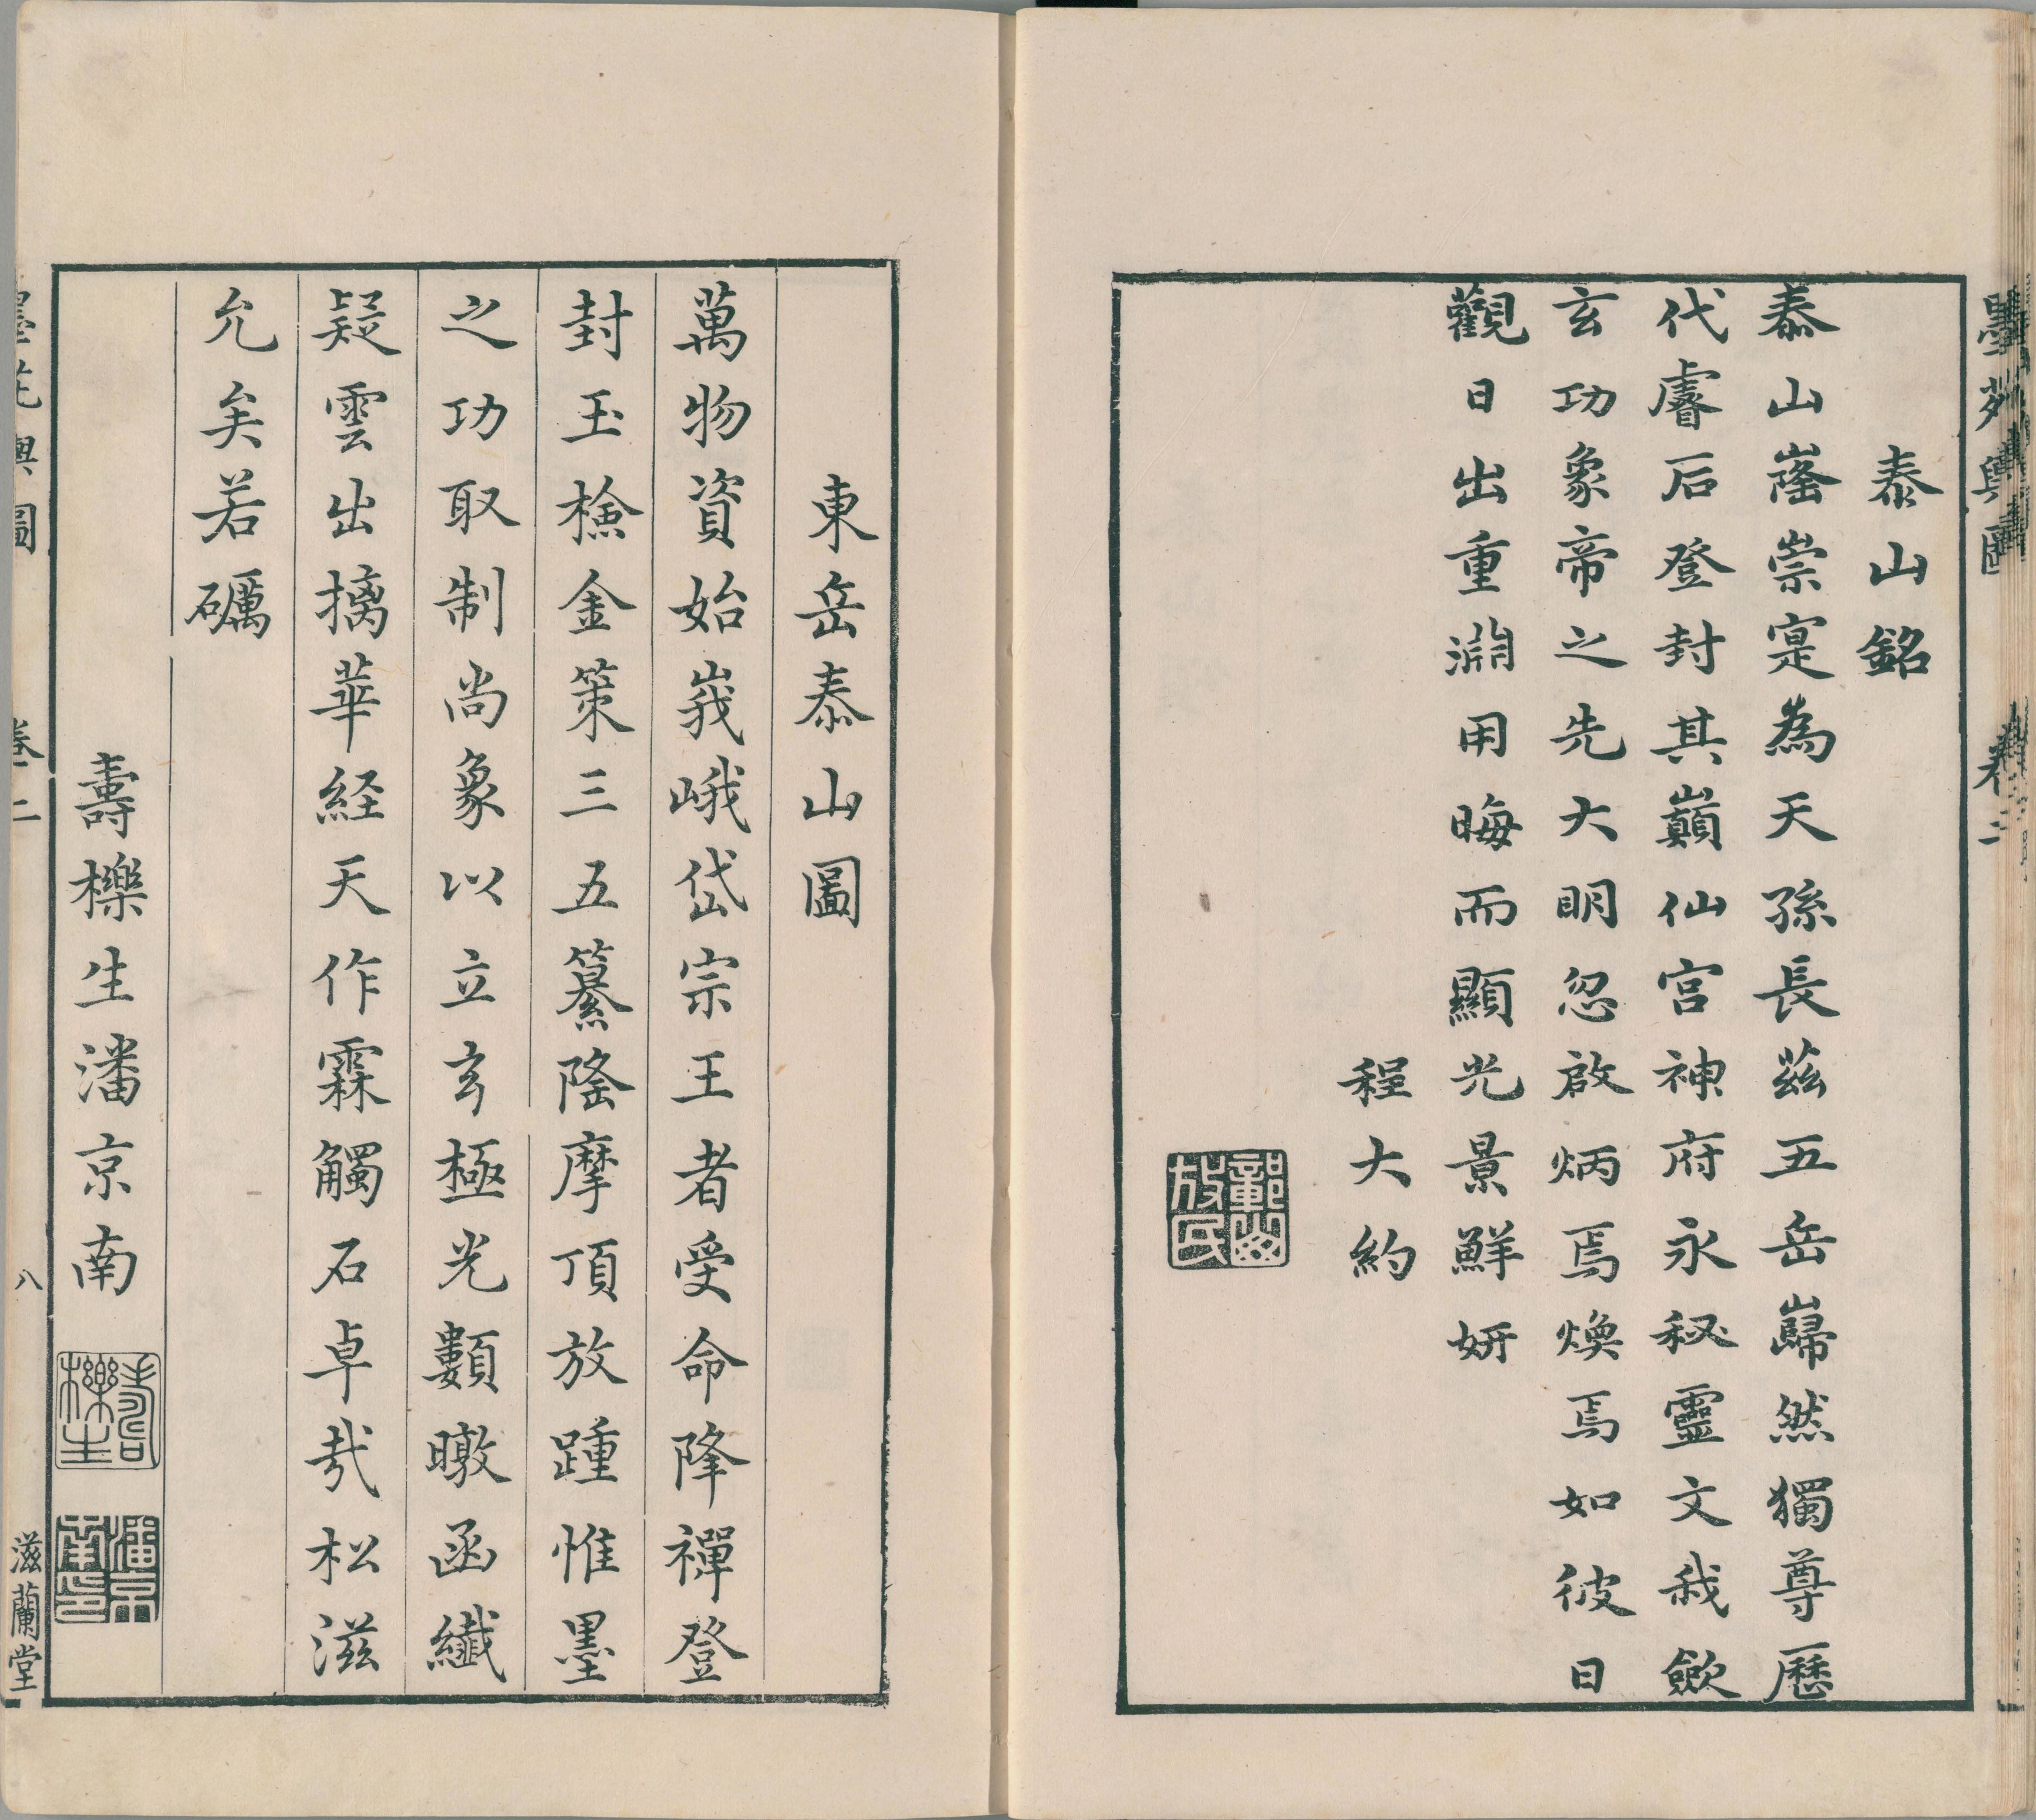 墨苑輿圖 卷二
泰山銘
泰山嶐崇寔為天孫長茲五岳巋然獨尊歷
代睿后登封其巔仙宮神府永秘靈文我歙
玄功象帝之先大明忽啟炳焉煥焉如彼日
觀日出重淵用晦而顯光景鮮妍
程大約
東岳泰山圖
萬物資始峩峨岱宗王者受命降禪登
封玉檢金策三五纂隆摩頂放踵惟墨
之功取制尚象以立玄極光顥曒函纖
疑雲出摛華経天作霖觸石卓哉松滋
允矣若礪
壽櫟生潘京南
壽櫟生
潘京南印
墨苑輿圖 卷二 八 滋蘭堂